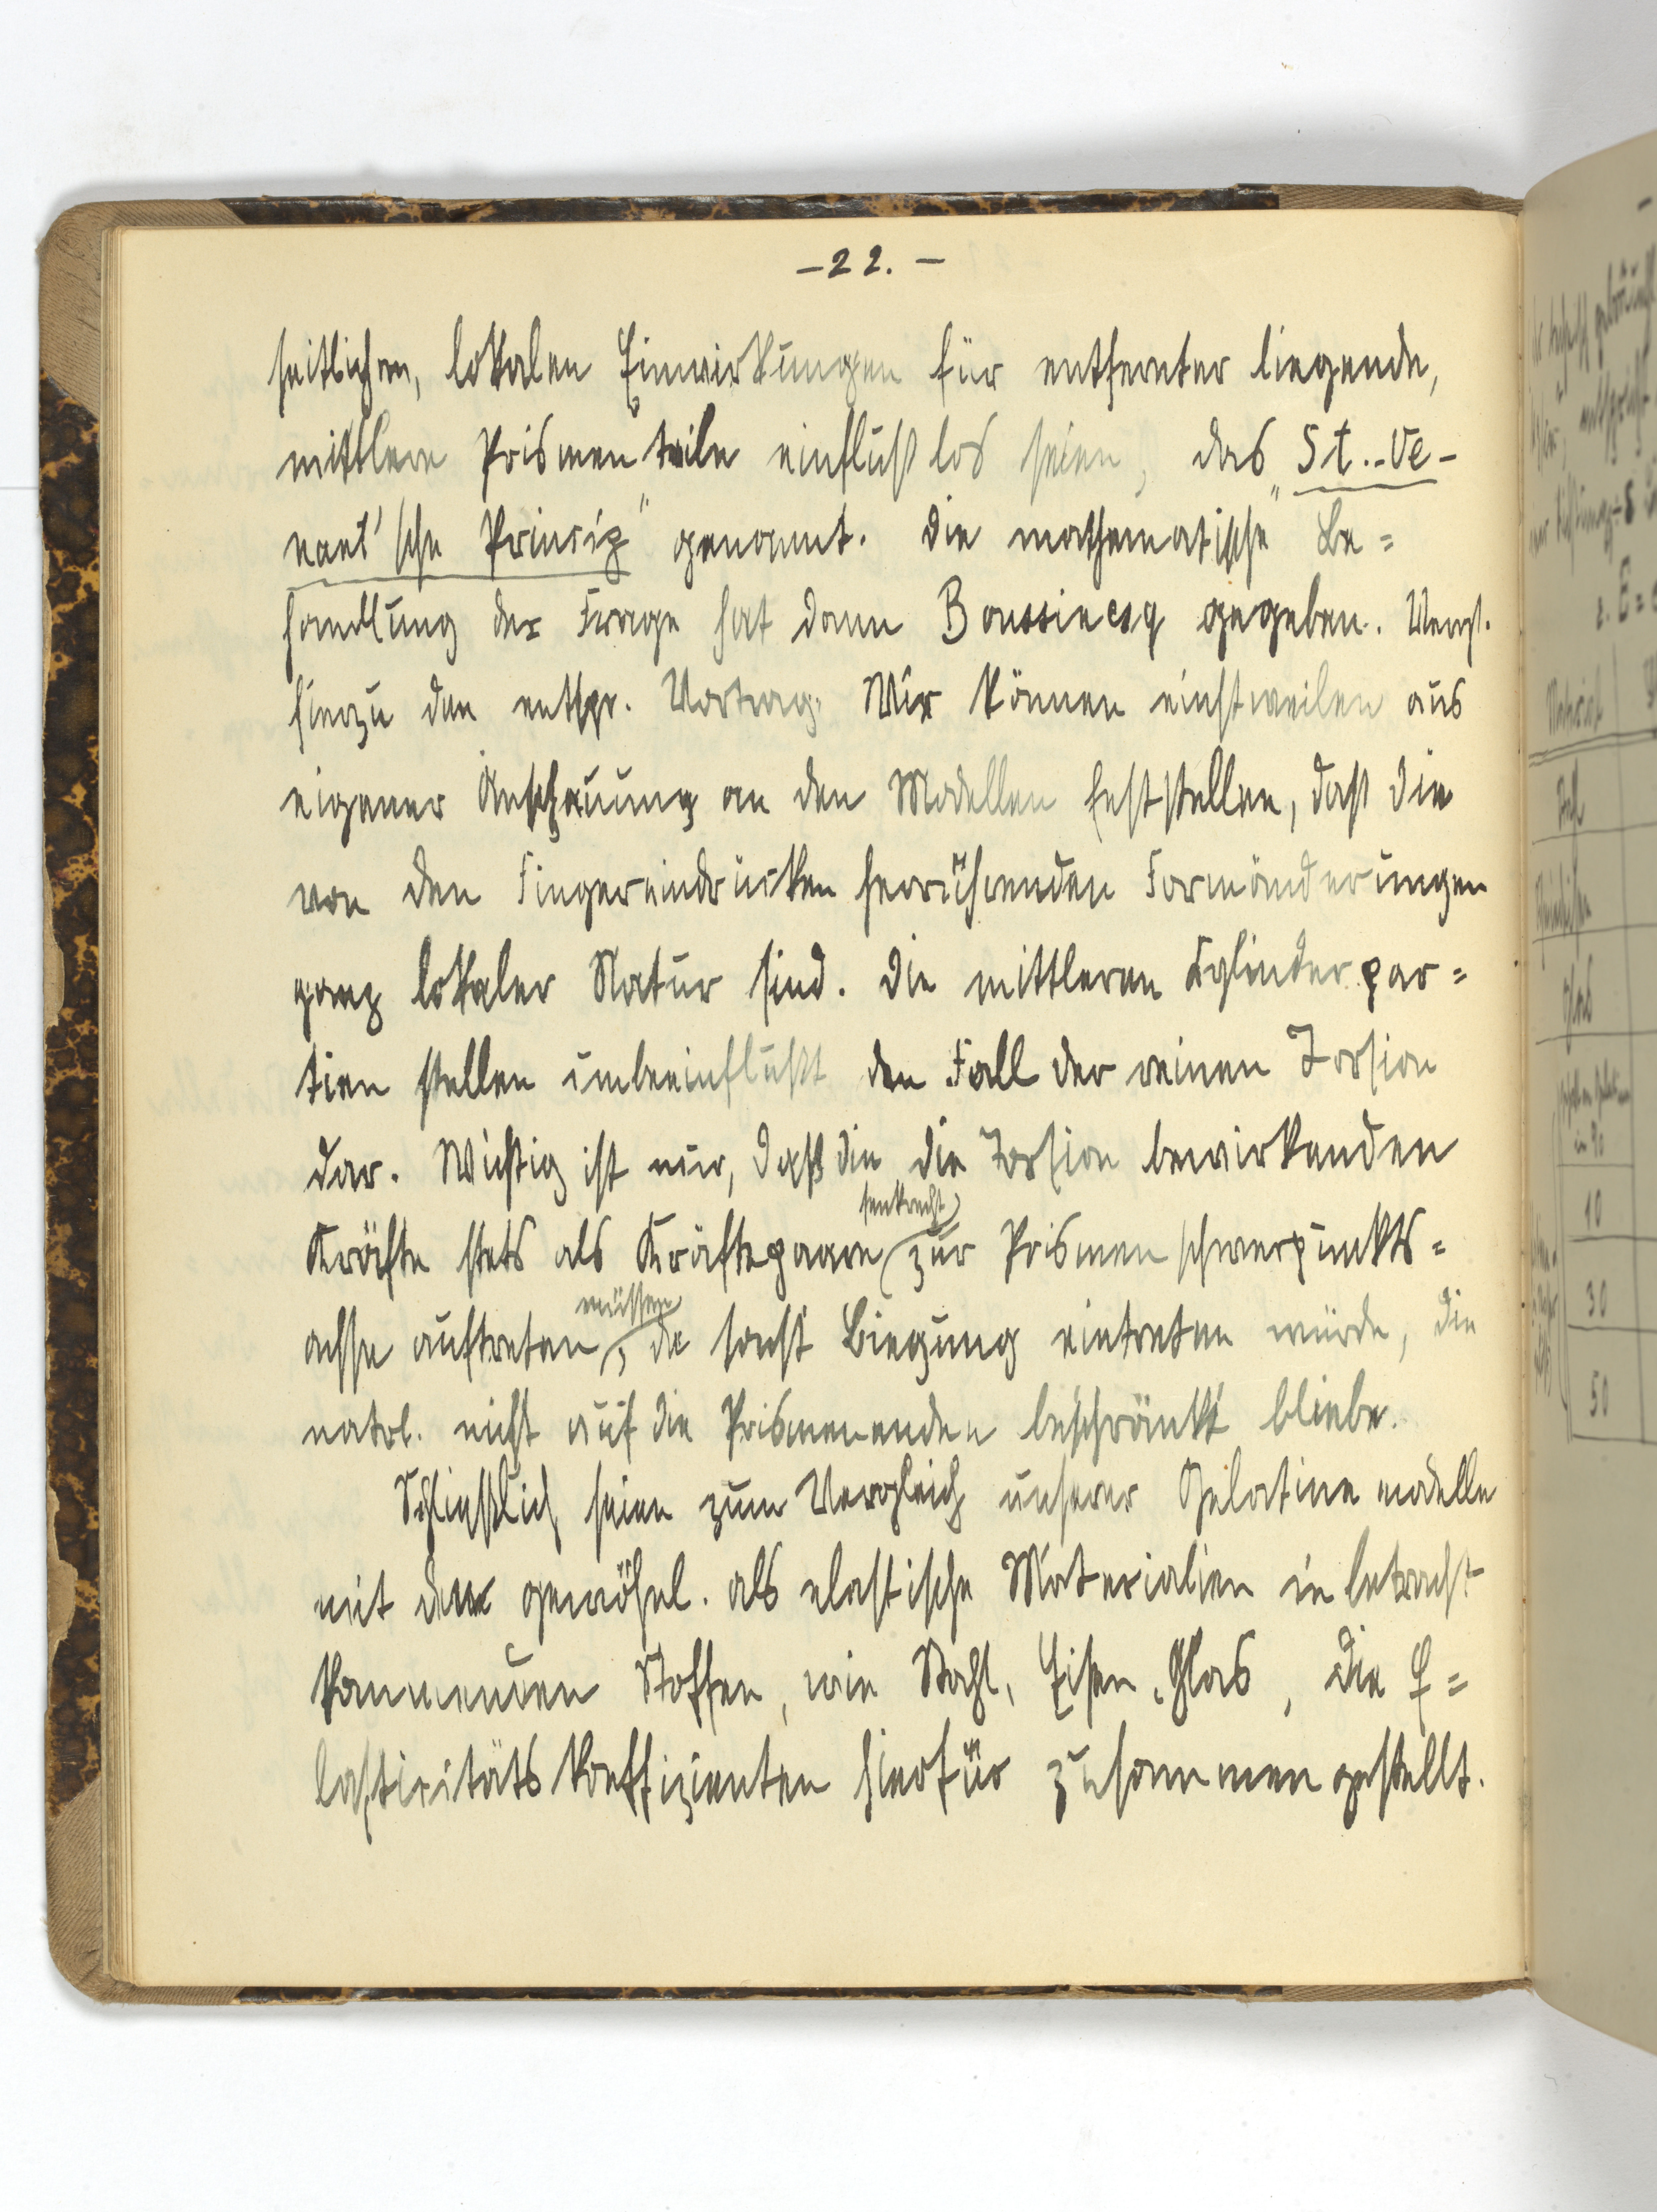 - 22. -
seitlichen, lokalen Einwirkungen für entfernter liegende,
mittlere Prismenteile einflußlos seien, das „St.-Ve-
nant'sche Princip" genannt. Die mathematische Be=
handlung der Frage hat dann Boussinesq gegeben. Vergl.
hierzu den entspr. Vortrag. Wir können einstweilen aus
eigener Anschauung an den Modellen feststellen, daß die
von den Fingereindrücken herrührenden Formänderungen
ganz lokaler Natur sind. Die mittleren Cylinderpar=
tien stellen unbeeinflußt den Fall der reinen Torsion
dar. Wichtig ist nur, daß die die Torsion bewirkenden
senkrecht
Kräfte stets als Kräftepaare zur Prismenschwerpunkts=
müssen
achse auftreten, da sonst Biegung eintreten würde, die
natrl. nicht auf die Prismenenden beschränkt bliebe.
Schließlich seien zum Vergleich unserer Gelatinemodelle
mit den gewöhnl. als elastische Materialien in betracht
kommenden Stoffen, wie Stahl, Eisen, Glas, die E=
lasticitätskoeffizienten hierfür zusammengestellt.
Material
Glas
10
30
50